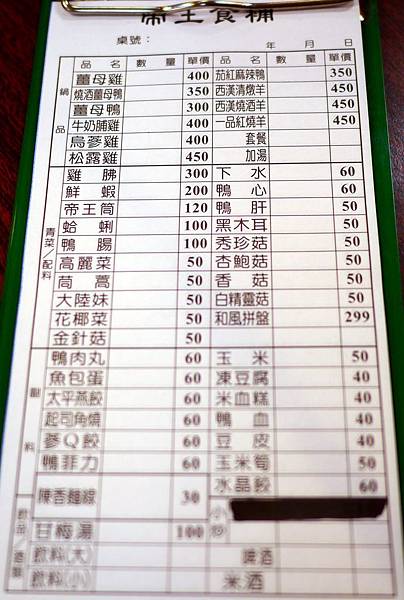 帝王食補
桌號： 年 月 日
品名 數量 單價 品名 數量 單價
鍋品
薑母雞 400 茄紅麻辣鴨 350
燒酒薑母鴨 350 西漢清燉羊 450
薑母鴨 300 西漢燒酒羊 450
牛奶脯雞 400 一品紅燒羊 450
烏蔘雞 400 套餐
松露雞 450 加湯
青菜／配料
雞胇 300 下水 60
鮮蝦 200 鴨心 60
帝王筒 120 鴨肝 50
蛤蜊 100 黑木耳 50
鴨腸 100 秀珍菇 50
高麗菜 50 杏鮑菇 50
茼蒿 50 香菇 50
大陸妹 50 白精靈菇 50
花椰菜 50 和風拼盤 299
金針菇 50
副料
鴨肉丸 60 玉米 50
魚包蛋 60 凍豆腐 40
太平燕餃 60 米血糕 40
起司角燒 60 鴨血 40
蔘Q餃 60 豆皮 40
鴨菲力 60 玉米筍 50
陳香麵線 30 水晶餃 60
小炒
甘梅湯 100
飲料(大) 啤酒
飲料(小) 米酒